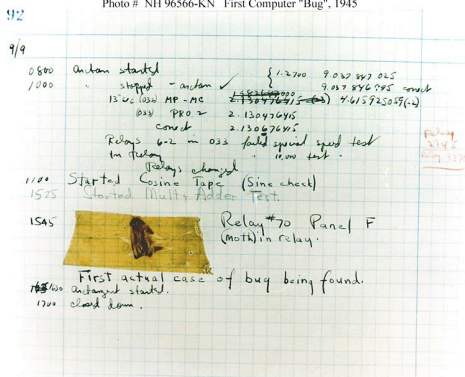 Photo # NH 96566-KN First Computer "Bug", 1945
92
9/9
0800 antan started
1000 " stopped - antan ✓ { 1.2700 9.037 847 025
9.037 846 995 conect
13"uc (032) MP - MC 2.130476415 4.615925059(-2)
(033) PRO 2 2.130476415
conect 2.130676415
Relays 6-2 in 033 failed special speed test
in Relay " 10,000 test.
Relay
2145
Relays changed
1100 Started Cosine Tape (Sine check)
1525 Started Mult+Adder Test.
1545 Relay #70 Panel F
(Moth) in relay.
First actual case of bug being found.
1630 antangent started.
1700 closed down.